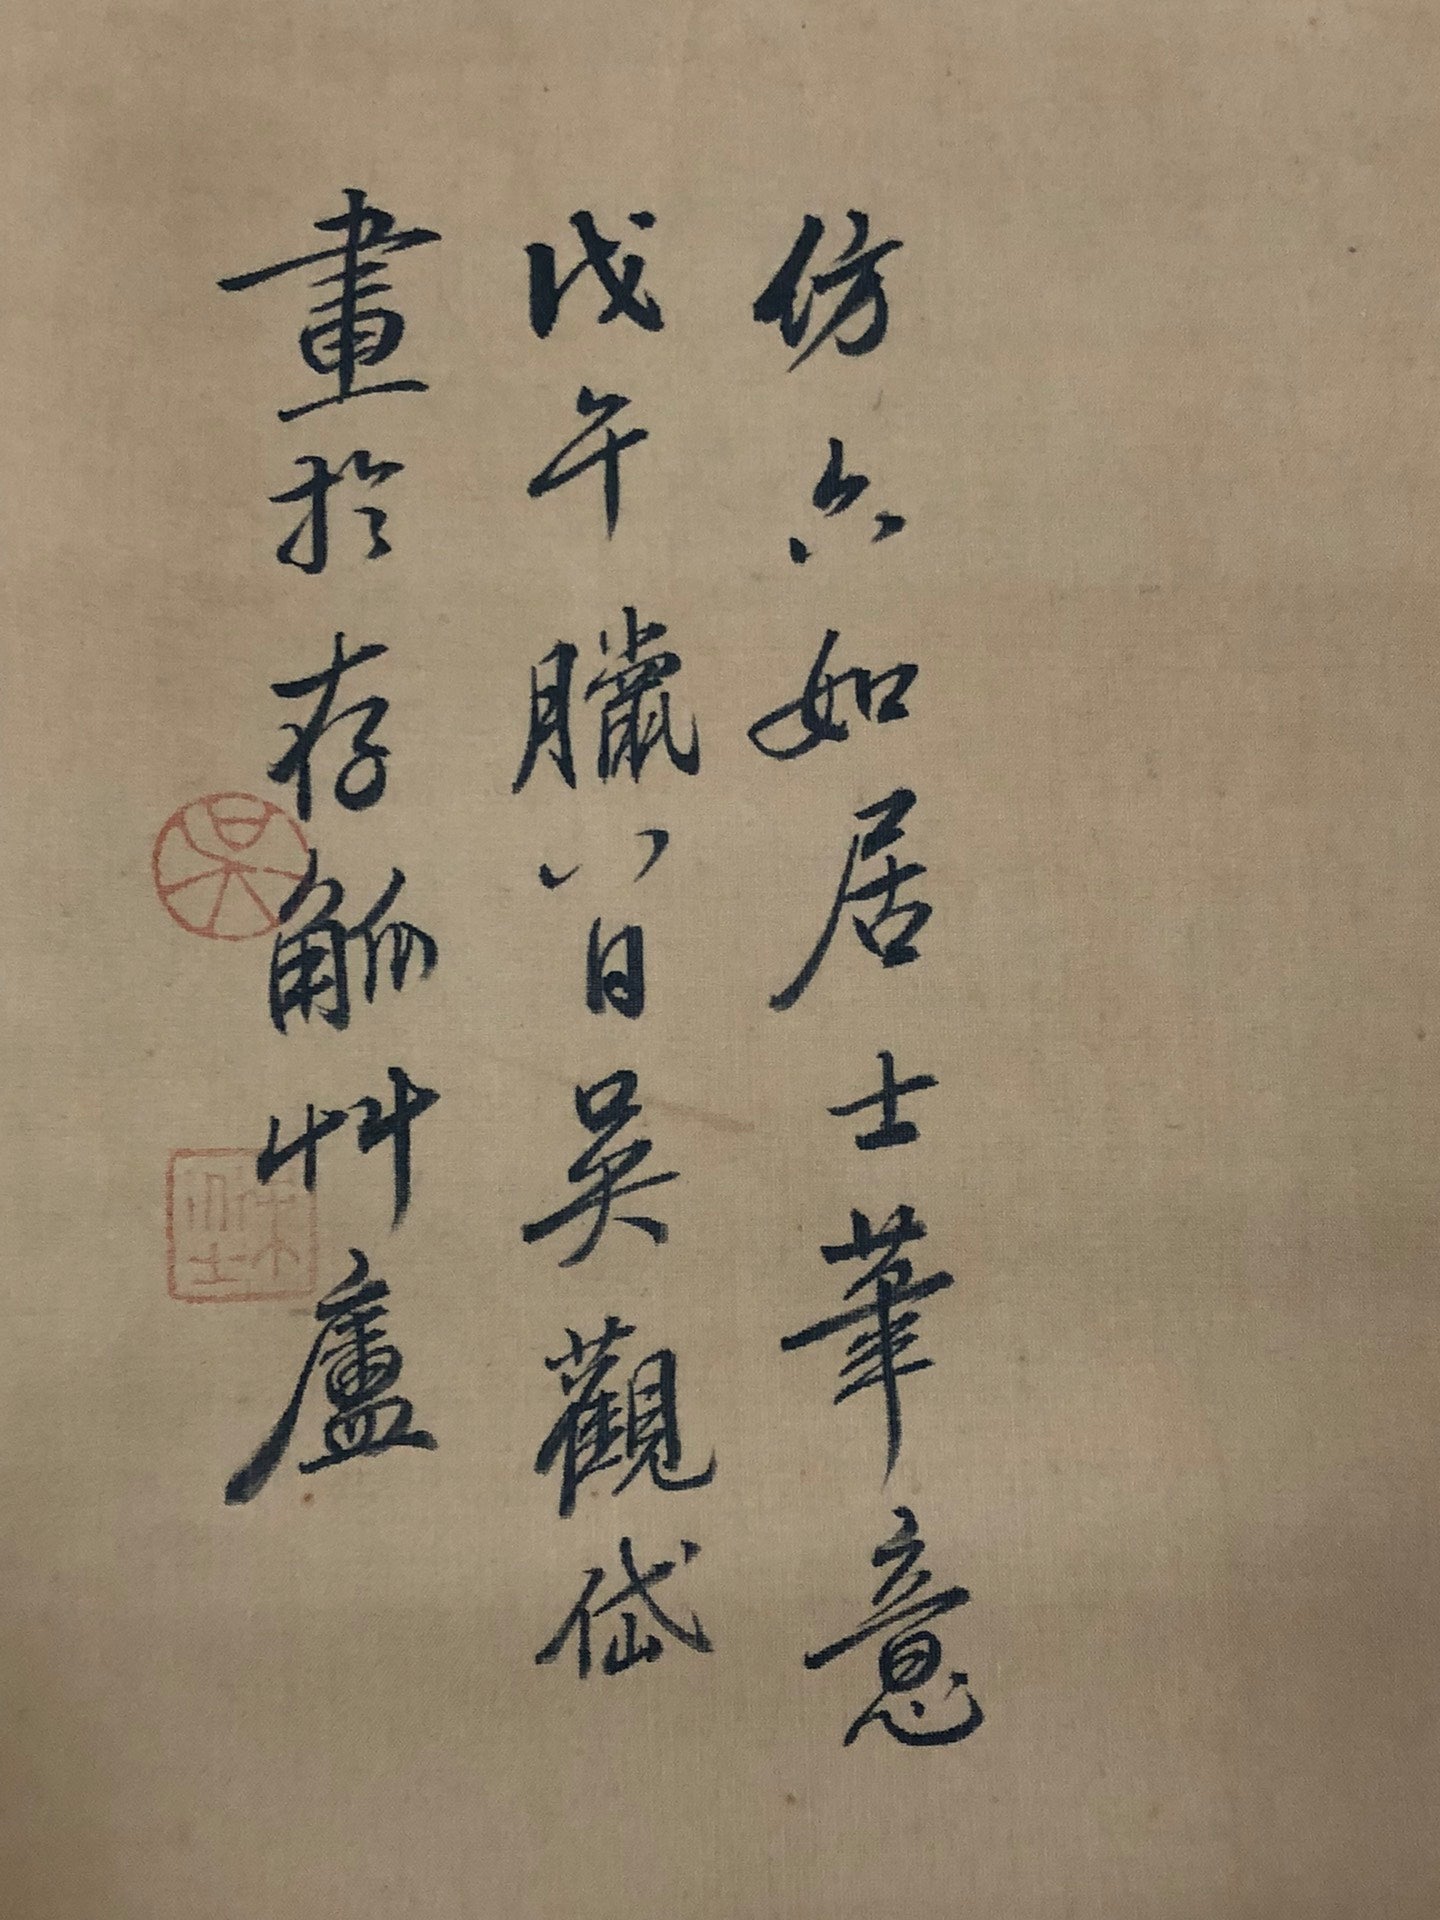 仿六如居士筆意
戊午臘八日吳觀岱
畫於存觚艸廬
吳